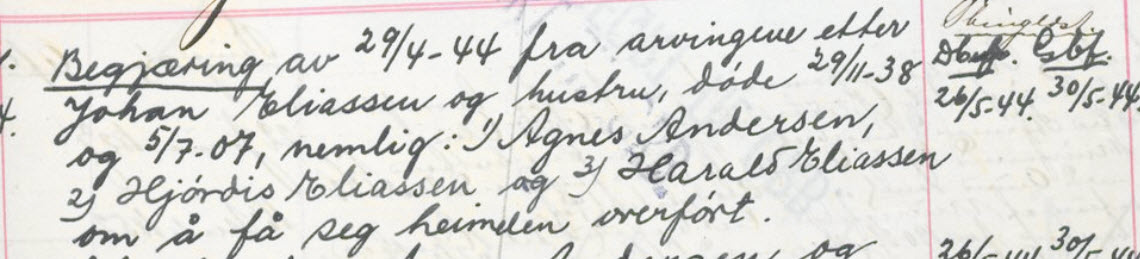 Begjæring av 29/4-44 fra arvingene etter
Johan Eliassen og hustru, døde 29/11-38
og 5/7-07, nemlig: 1) Agnes Andersen,
2) Hjördis Eliassen og 3) Harald Eliassen
om å få seg heimelen overført.
og
Thinglest
Dbf. Gbf.
26/5-44. 30/5-44.
26/5-44 30/5-44